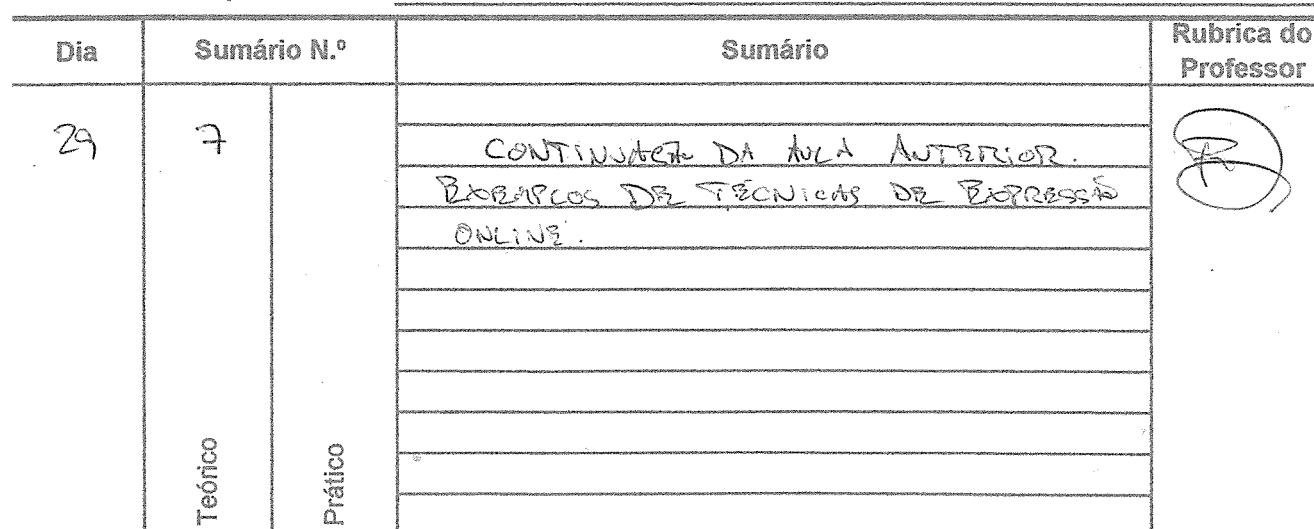 Dia
Sumário N.º
Sumário
Rubrica do
Professor
29
7
CONTINUAÇÃO DA AULA ANTERIOR.
EXEMPLOS DE TÉCNICAS DE EXPRESSÃO
ONLINE.
Teórico
Prático